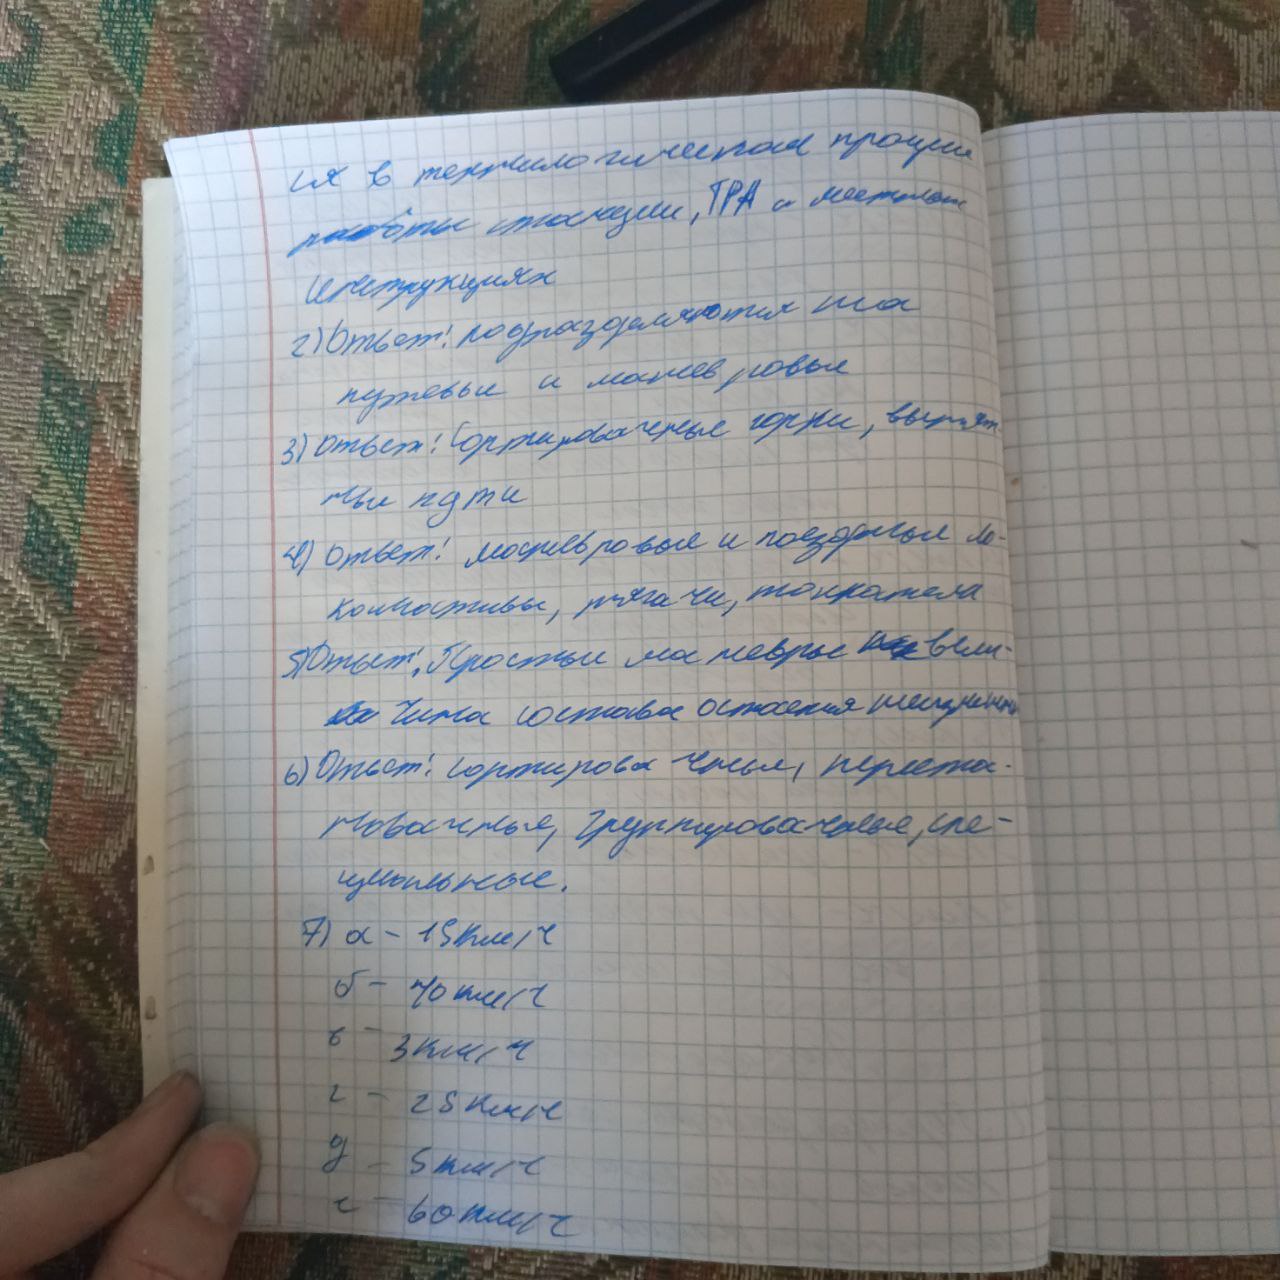 ся в технологическом процессе
работы станции, ТРА и местных
инструкциях
2) Ответ: подразделяются на
путевые и маневровые
3) Ответ: Сортировачные горки, вытяж
ные пути
4) Ответ: маневровые и поездные ло-
комотивы, тягачи, толкатели
5) Ответ: Простые маневры вели-
чина состава остаётся неизменной
6) Ответ: сортировачные, переста-
новачные, группировачные, спе-
циальные.
7) а - 15км/ч
б - 40км/ч
в - 3км/ч
г - 25км/ч
д - 5км/ч
е - 60км/ч